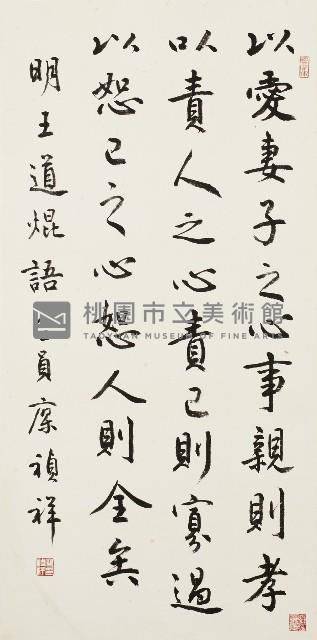 以愛妻子之心事親則孝
以責人之心責己則寡過
以恕己之心恕人則全交
明王道焜語 員廖禎祥
桃園市立美術館
TAOYUAN MUSEUM OF FINE ARTS